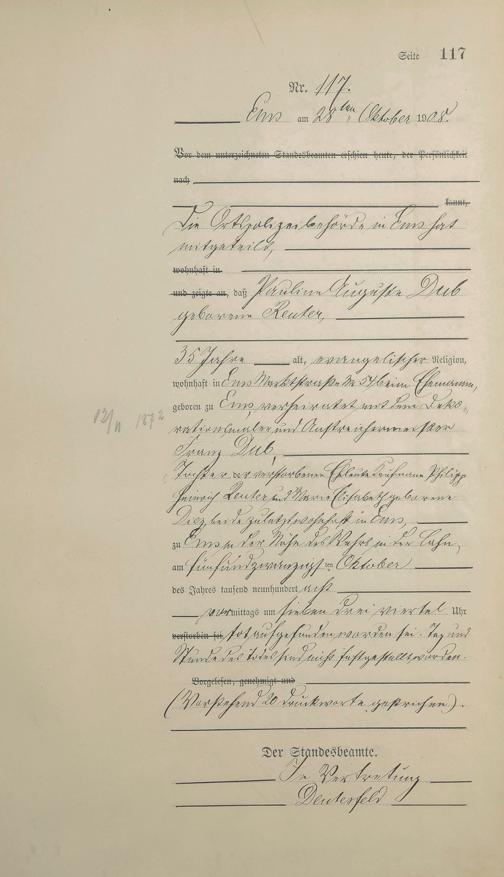 Seite 117
Nr. 117.
Ems am 28ten Oktober 1908.
Vor dem unterzeichneten Standesbeamten erschien heute, der Persönlichkeit
nach
kannt,
Die Ortspolizeibehörde in Ems hat
mitgeteilt,
wohnhaft in
und zeigte an, daß Pauline Auguste Dub
geborene Reuter,
35 Jahre alt, evangelischer Religion,
wohnhaft in Ems Marktstraße No 54 beim Ehemanne,
geboren zu Ems verheiratet mit dem Deko-
rationsmaler und Anstreichermeister
Franz Dub,
Tochter der verstorbenen Eheleute Kaufmann Philipp
Heinrich Reuter und Marie Elisabeth geborene
Diez beide zuletzt wohnhaft in Ems,
zu Ems in der Nähe des Wehrs in der Lahn,
am fünfundzwanzigsten Oktober
des Jahres tausend neunhundert acht
vormittags um sieben drei viertel Uhr
verstorben sei, tot aufgefunden worden sei. Tag und
Stunde des Todes sind nicht festgestellt worden.
Vorgelesen, genehmigt und
(Vorstehend 20 Druckworte gestrichen).
Der Standesbeamte.
In Vertretung